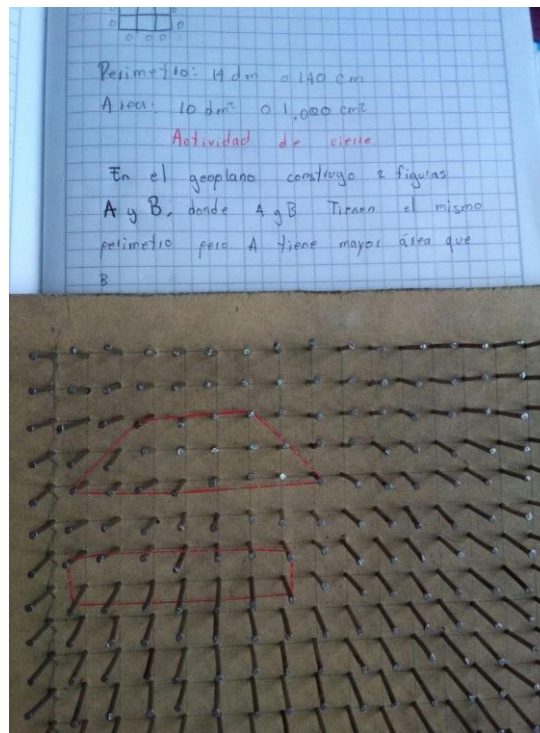 0 0
0 0 0 0
Perimetro: 14 dm o 140 cm
Area: 10 dm² o 1,000 cm²
Actividad de cierre
En el geoplano construyo 2 figuras
A y B, donde A y B Tienen el mismo
perimetro pero A tiene mayor área que
B